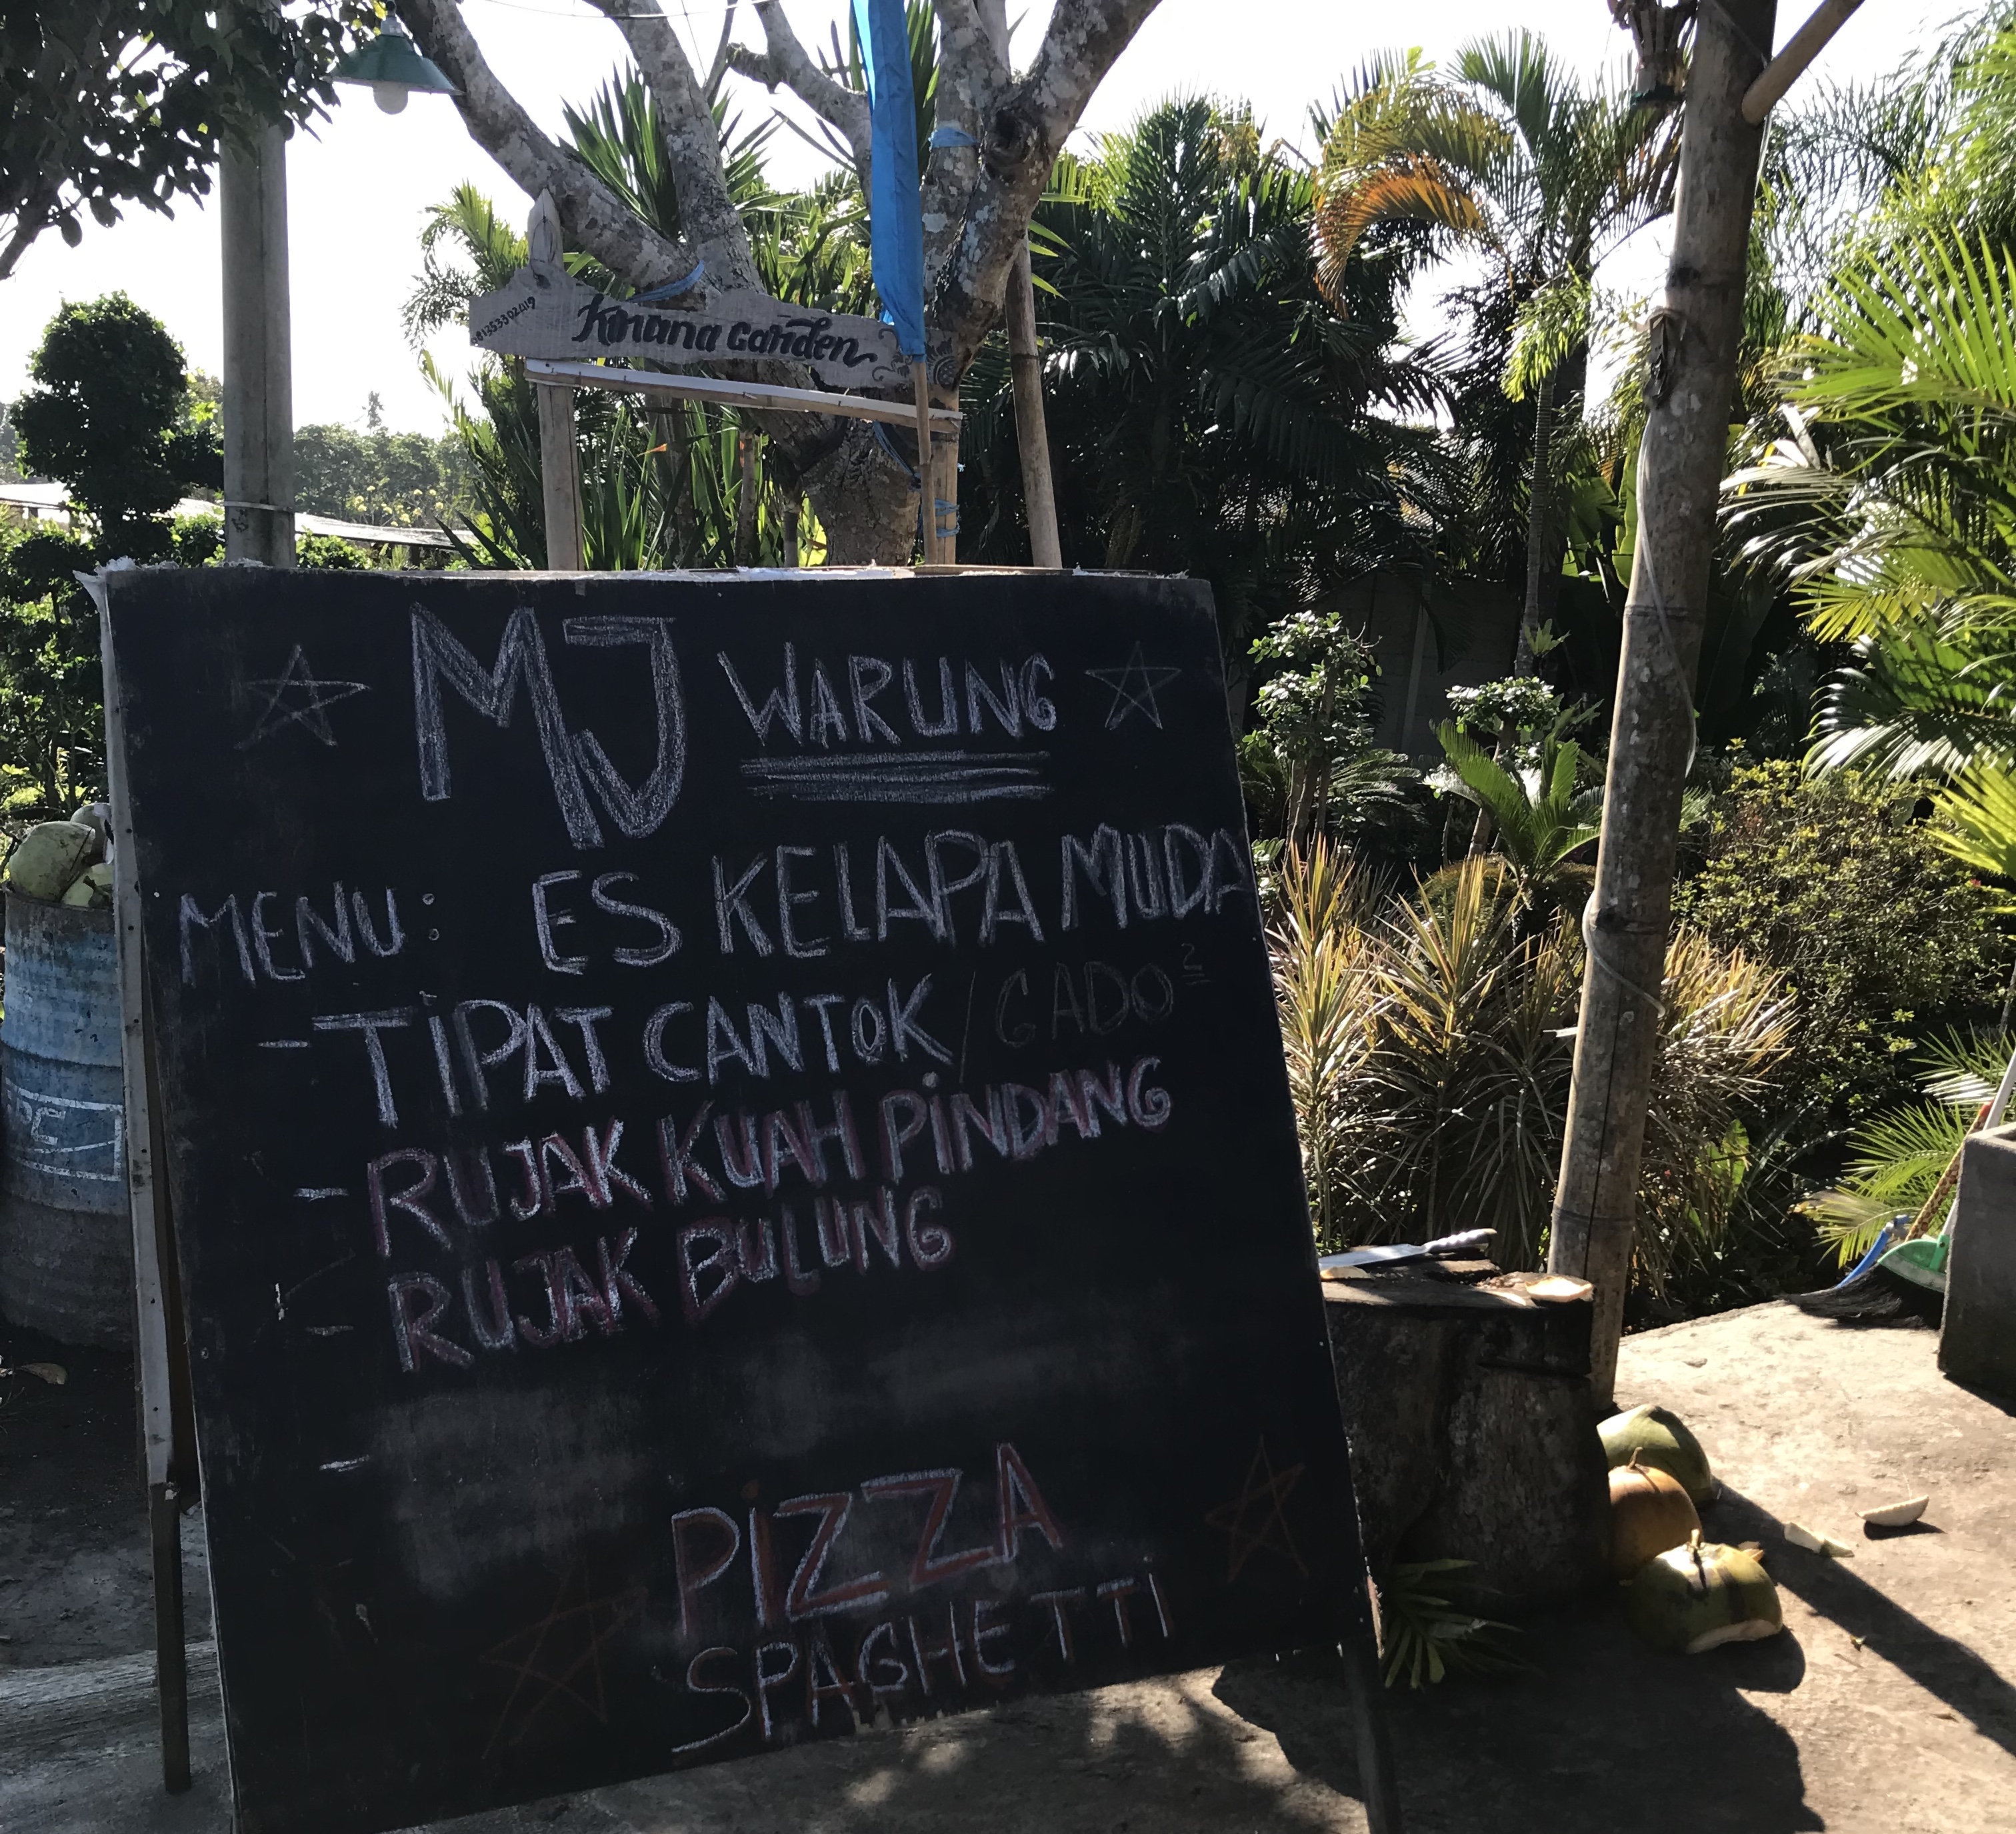 Kinana Garden
MJ WARUNG
MENU: ES KELAPA MUDA
-TIPAT CANTOK/GADO²
- RUJAK KUAH PINDANG
- RUJAK BULUNG
-
PIZZA
SPAGHETTI